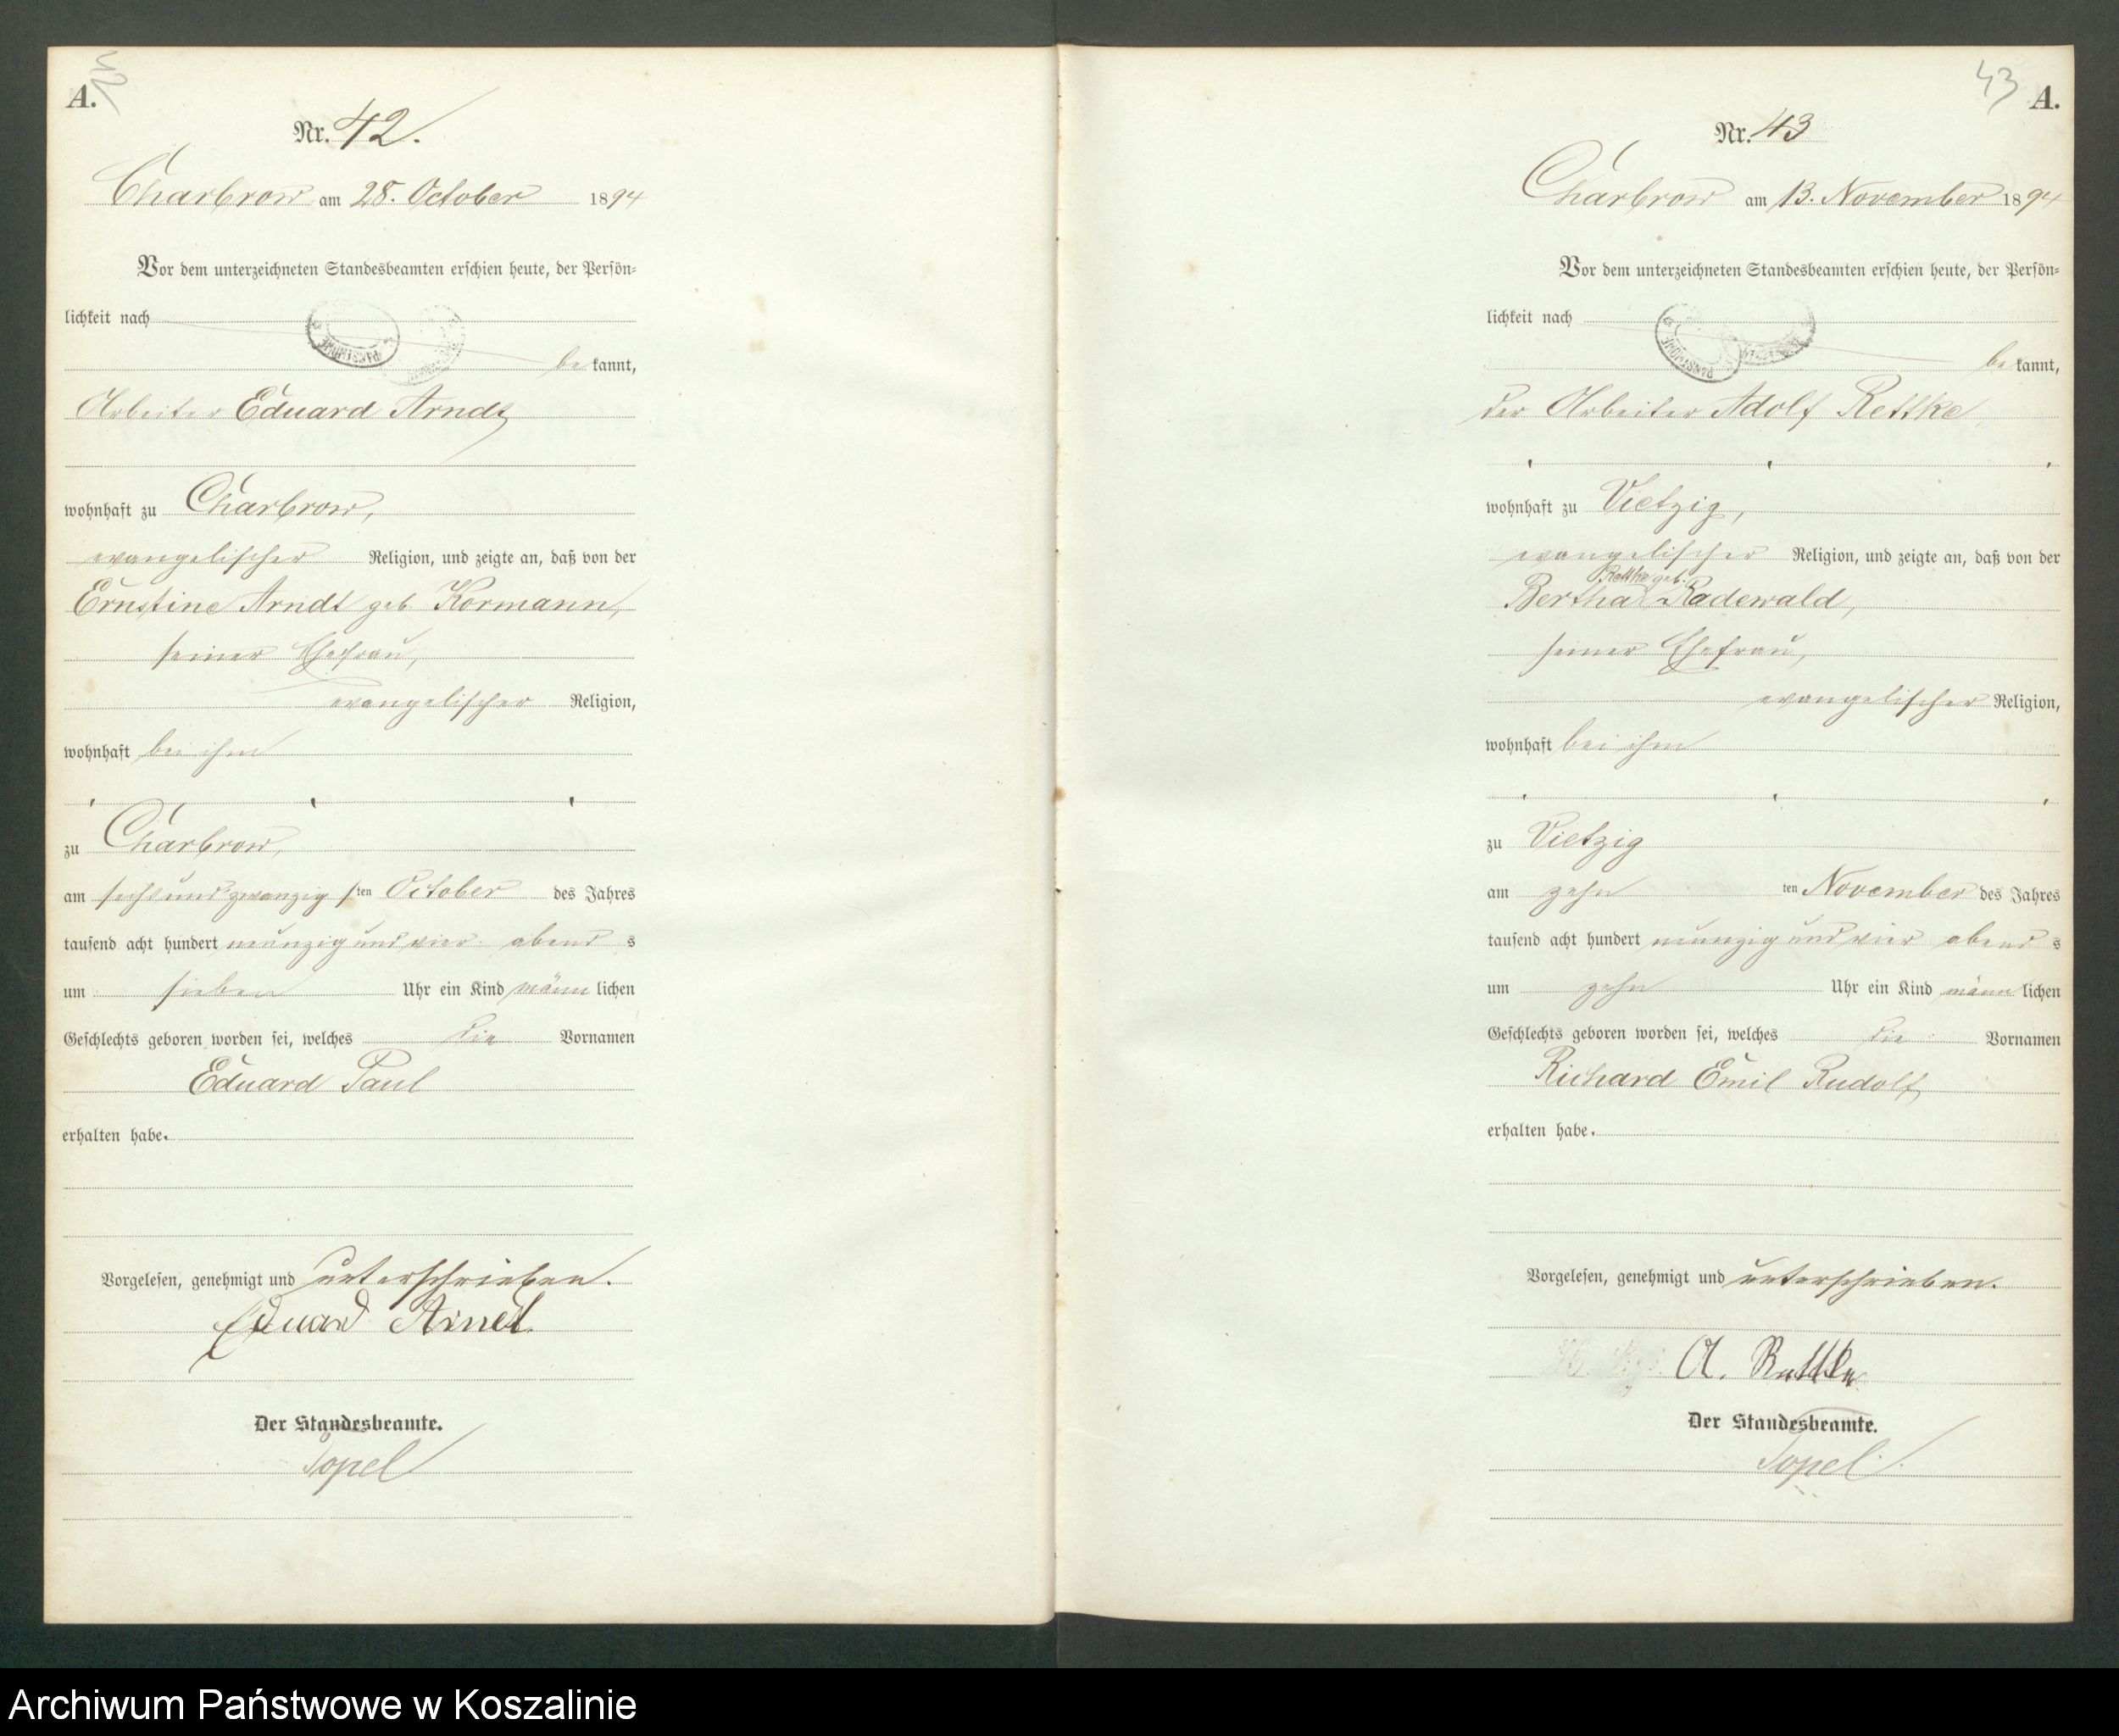 A.
Nr. 42.
Charbrow am 28. October 1894
Vor dem unterzeichneten Standesbeamten erschien heute, der Persön-
lichkeit nach
be kannt,
Arbeiter Eduard Arndt
wohnhaft zu Charbrow,
evangelischer Religion, und zeigte an, daß von der
Ernstine Arndt geb. Kormann,
seiner Ehefrau,
evangelischer Religion,
wohnhaft bei ihm
zu Charbrow,
am sechsundzwanzigsten October des Jahres
tausend acht hundert neunzig und vier abend s
um sieben Uhr ein Kind männ lichen
Geschlechts geboren worden sei, welches die Vornamen
Eduard Paul
erhalten habe.
Vorgelesen, genehmigt und unterschrieben.
Eduard Arndt
Der Standesbeamte.
Topel
43
A.
Nr. 43
Charbrow am 13. November 1894
Vor dem unterzeichneten Standesbeamten erschien heute, der Persön-
lichkeit nach
be kannt,
der Arbeiter Adolf Rettke
wohnhaft zu Vietzig,
evangelischer Religion, und zeigte an, daß von der
Rettke geb.
Bertha Radewald,
seiner Ehefrau,
evangelischer Religion,
wohnhaft bei ihm
zu Vietzig
am zehn ten November des Jahres
tausend acht hundert neunzig und vier abend s
um zehn Uhr ein Kind männ lichen
Geschlechts geboren worden sei, welches die Vornamen
Richard Emil Rudolf
erhalten habe.
Vorgelesen, genehmigt und unterschrieben.
A. Rettke
Der Standesbeamte.
Topel
Archiwum Państwowe w Koszalinie